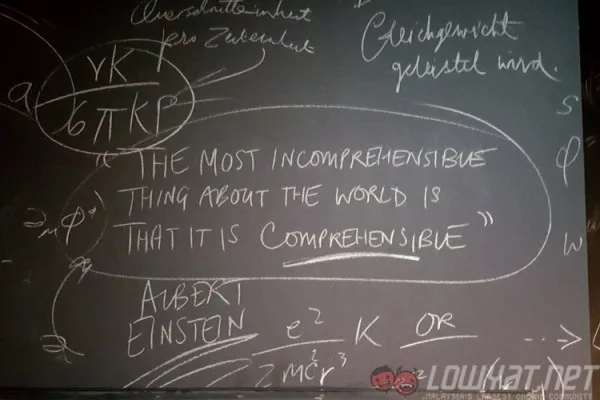 Querschnittseinheit
pro Zeiteinheit
Gleichgewicht
geleistet wird.
a
νK
6πKP
s
φ
w
"THE MOST INCOMPREHENSIBLE
THING ABOUT THE WORLD IS
THAT IT IS COMPREHENSIBLE"
ALBERT
EINSTEIN
e² K OR
LOWYAT.NET
MALAYSIA'S LARGEST ONLINE COMMUNITY